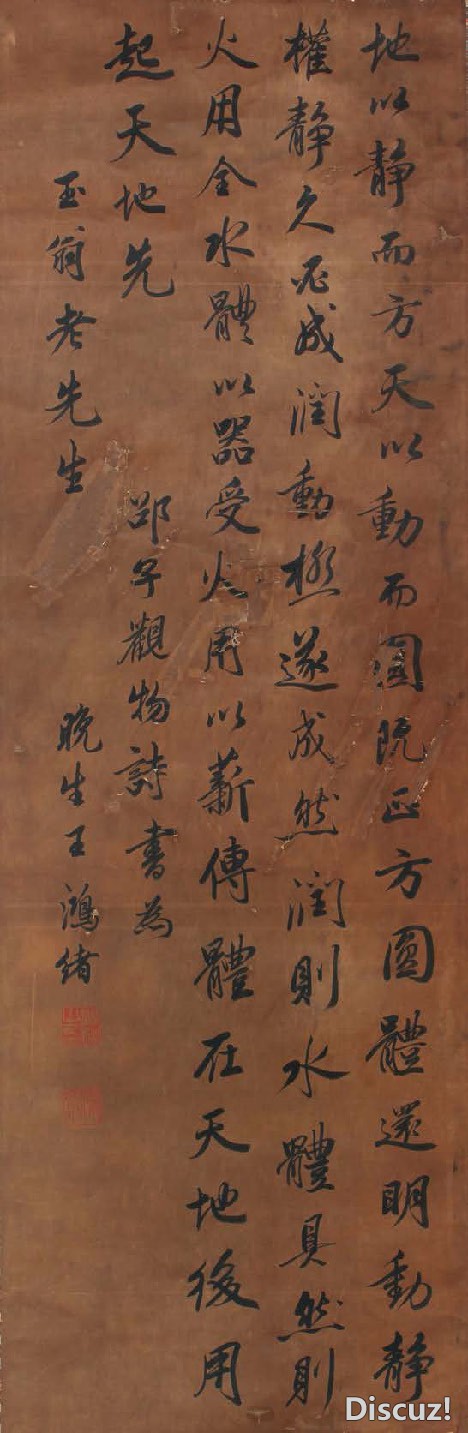 地以静而方天以動而圆既正方圓體還明動静
權静久必成潤動極遂成然潤則水體具然則
火用全水體以器受火用以薪傳體在天地後用
起天地先
邵子觀物詩書為
玉翁老先生
晚生王鴻緒
Discuz!